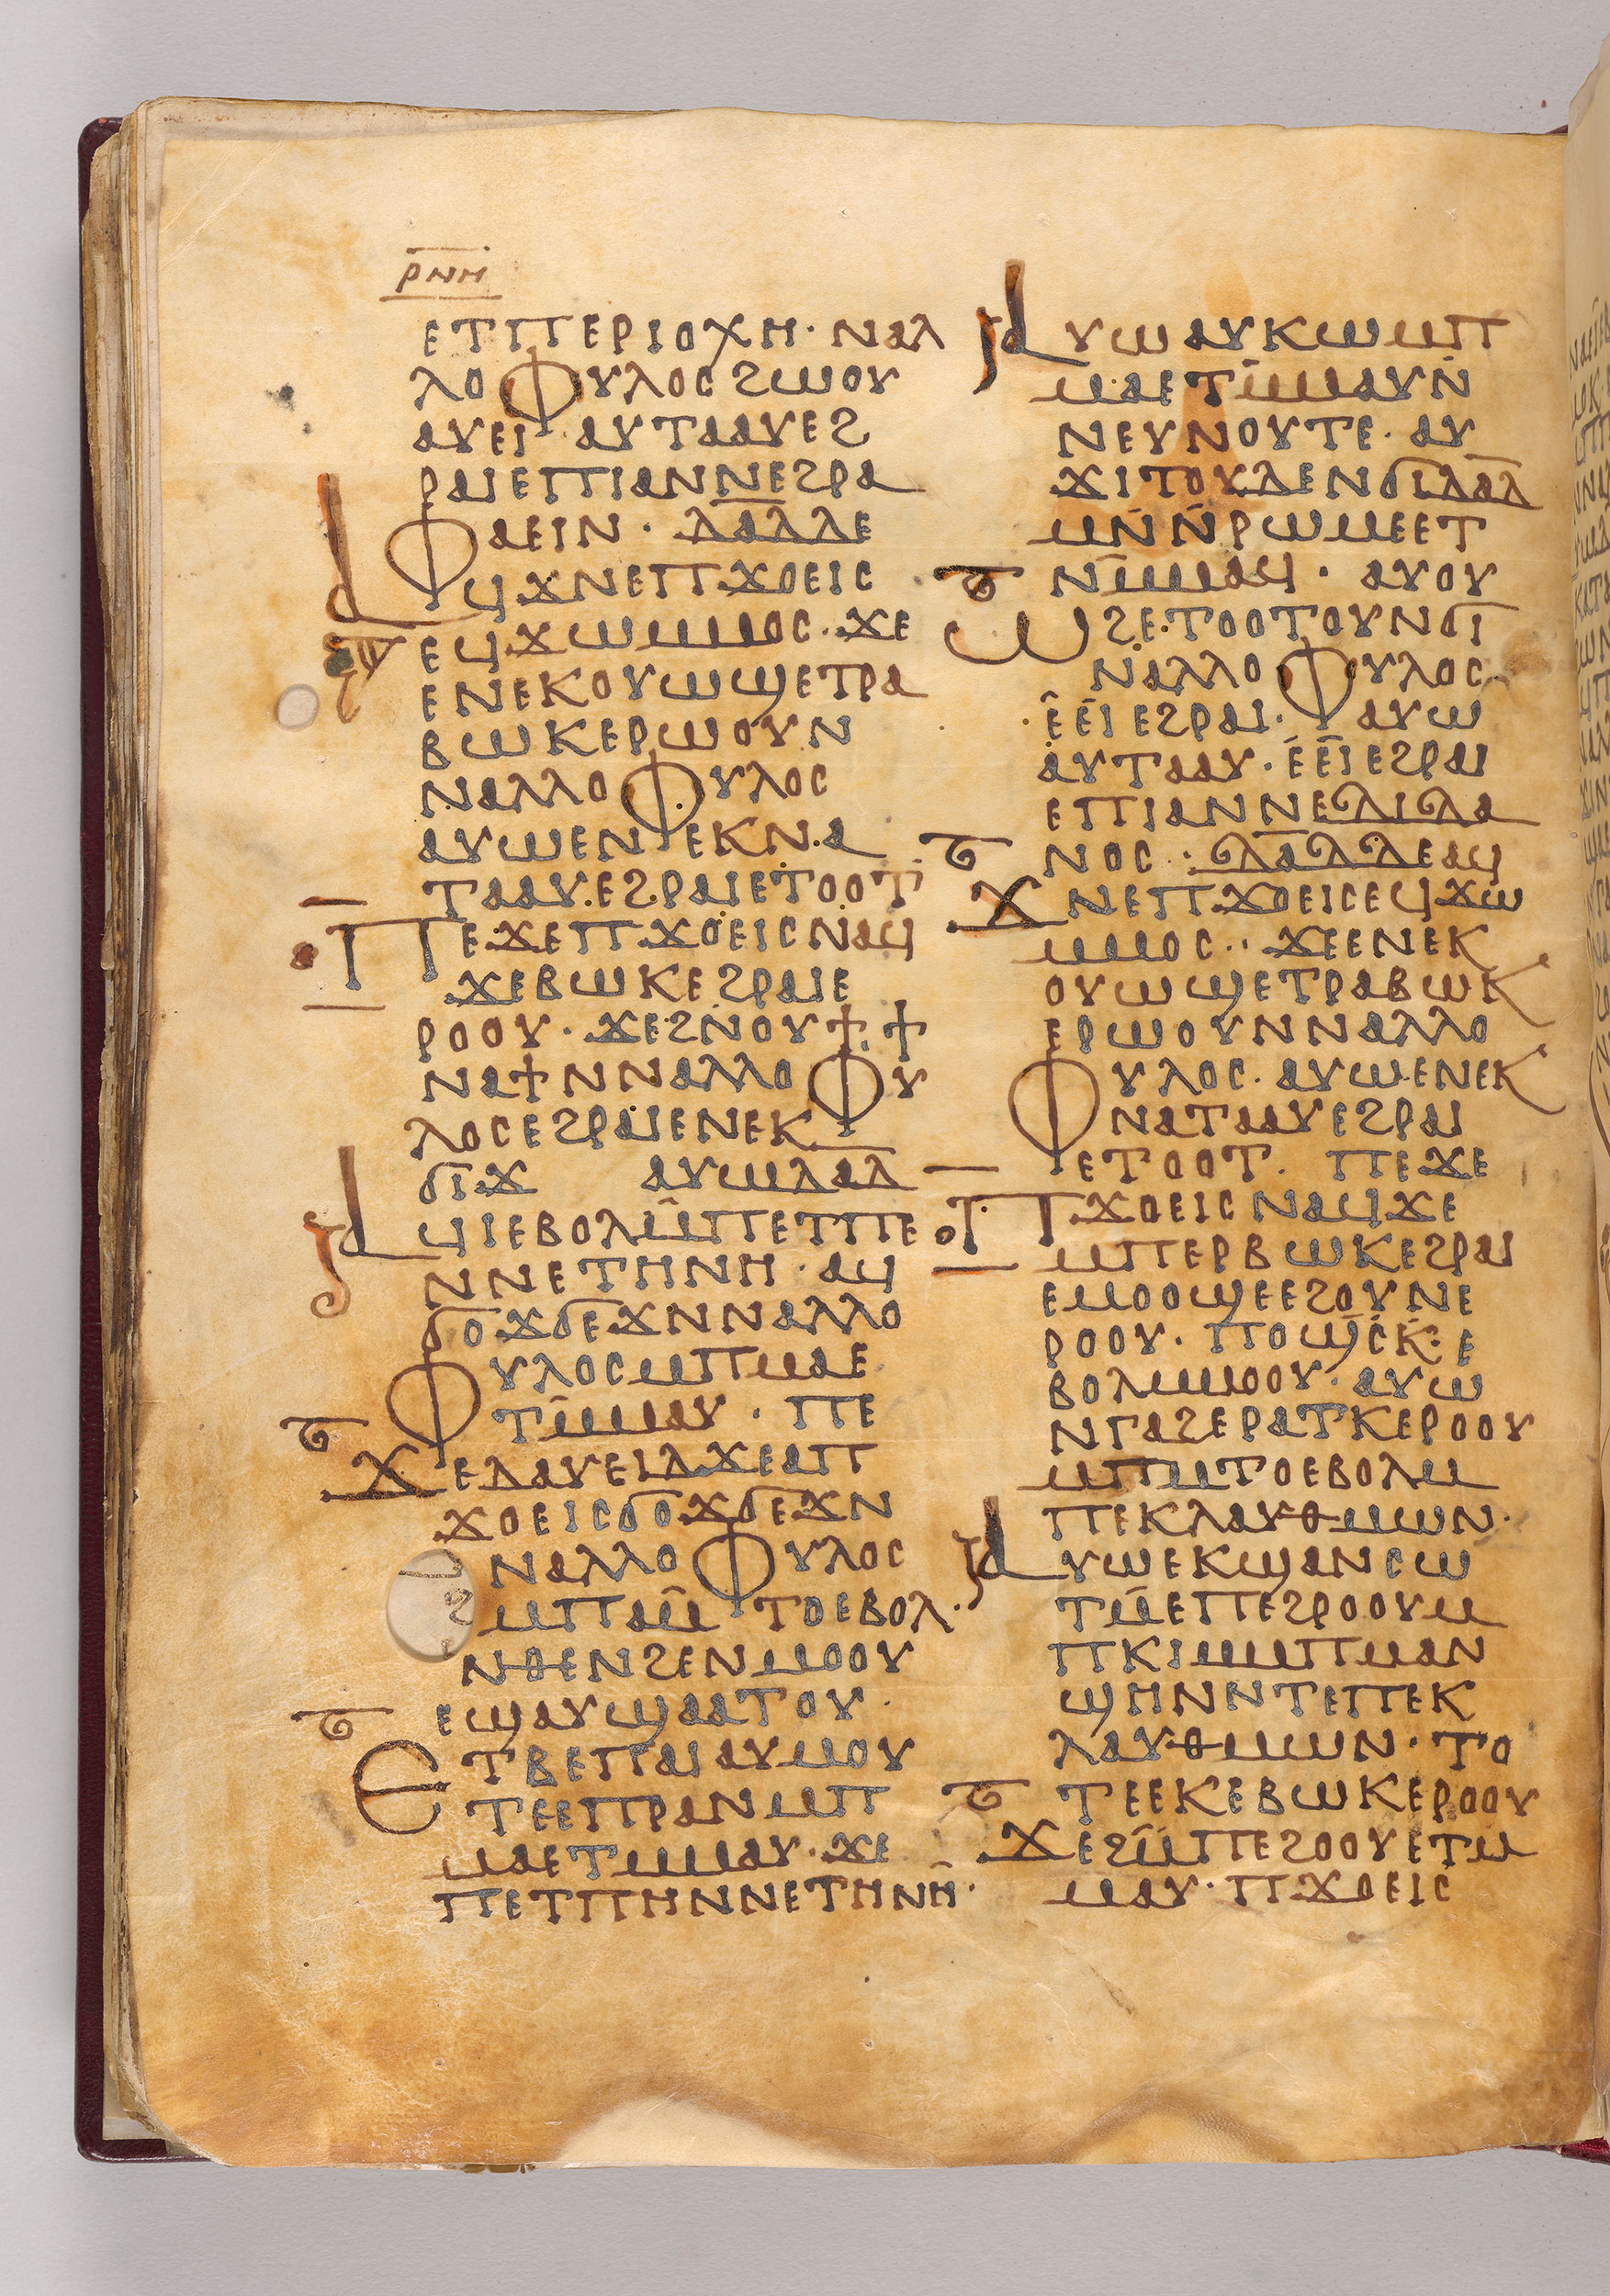 ⲣⲛⲏ
ⲉⲧⲡⲉⲣⲓⲟⲭⲏ· ⲛⲁⲗ
ⲗⲟⲫⲩⲗⲟⲥ ϩⲱⲟⲩ
ⲁⲩⲉⲓ ⲁⲩⲧⲁⲁⲩⲉϩ
ⲣⲁⲓⲉⲡⲓⲁⲛⲛⲉϩⲣⲁ
ⲫⲁⲉⲓⲛ· ⲇⲁ̅ⲇⲇⲉ
ⲁϥϫⲛⲉⲡϫⲟⲉⲓⲥ
ⲉϥϫⲱⲙⲙⲟⲥ· ϫⲉ
ⲉⲛⲉⲕⲟⲩⲱϣⲉⲧⲣⲁ
ⲃⲱⲕⲉⲣⲱⲟⲩⲛ
ⲛⲁⲗⲗⲟⲫⲩⲗⲟⲥ
ⲁⲩⲱⲉⲛⲉⲕⲛⲁ
ⲧⲁⲁⲩⲉϩⲣⲁⲓⲉⲧⲟⲟⲧ
ⲡⲉϫⲉⲡϫⲟⲉⲓⲥⲛⲁϥ
ϫⲉⲃⲱⲕⲉϩⲣⲁⲓⲉ
ⲣⲟⲟⲩ· ϫⲉϩⲛⲟⲩϯ ϯ
ⲛⲁϯⲛⲛⲁⲗⲗⲟⲫⲩ
ⲗⲟⲥⲉϩⲣⲁⲓⲉⲛⲉⲕ
ϭⲓϫ ⲁⲩⲱⲇⲁ̅ⲇ
ⲁϥⲓⲉⲃⲟⲗⲙ̅ⲡⲉⲧⲡⲉ
ⲛⲛⲉⲧⲏⲛⲏ· ⲁϥ
ϭⲟϫϭⲉϫⲛⲛⲁⲗⲗⲟ
ⲫⲩⲗⲟⲥⲙⲡⲙⲁⲉ
ⲧⲙ̅ⲙⲁⲩ· ⲡⲉ
ϫⲉⲇⲁⲩⲉⲓⲇϫⲉⲁⲡ
ϫⲟⲉⲓⲥϭⲟϫϭⲉϫⲛ
ⲛⲁⲗⲗⲟⲫⲩⲗⲟⲥ
ϩⲙⲡⲁⲙ̅ ⲧⲟⲉⲃⲟⲗ·
ⲛⲑⲉⲛϩⲉⲛⲙⲟⲟⲩ
ⲉϣⲁⲩϣⲁⲁⲧⲟⲩ·
ⲉⲧⲃⲉⲡⲁⲓⲁⲩⲙⲟⲩ
ⲧⲉⲉⲡⲣⲁⲛⲙⲡ
ⲙⲁⲉⲧⲙⲙⲁⲩ· ϫⲉ
ⲡⲉⲧⲡⲏⲛⲛⲉⲧⲏⲛⲏ·
ⲁⲩⲱⲁⲩⲕⲱⲙⲡ
ⲙⲁⲉⲧⲙ̅ⲙⲁⲩⲛ̇
ⲛⲉⲩⲛⲟⲩⲧⲉ· ⲁⲩ
ϫⲓⲧⲟⲩⲇⲉⲛϭⲓⲇⲁ̅ⲇ
ⲙⲛ̇ⲛ̇ⲣⲱⲙⲉⲉⲧ
ⲛⲙ̅ⲙⲁϥ· ⲁⲩⲟⲩ
ⲱϩⲉ·ⲧⲟⲟⲧⲟⲩⲛϭⲓ
ⲛⲁⲗⲗⲟⲫⲩⲗⲟⲥ
ⲉ̅ⲉ̅ⲓⲉϩⲣⲁⲓ· ⲁⲩⲱ
ⲁⲩⲧⲁⲁⲩ·ⲉ̅ⲉ̅ⲓⲉϩⲣⲁⲓ
ⲉⲡⲓⲁⲛⲛⲉⲇⲓⲇⲁ
ⲛⲟⲥ·· ⲇⲁ̅ⲇⲇⲉⲁϥ
ϫⲛⲉⲡϫⲟⲉⲓⲥⲉϥϫⲱ
ⲙⲙⲟⲥ·· ϫⲉⲉⲛⲉⲕ
ⲟⲩⲱϣⲉⲧⲣⲁⲃⲱⲕ
ⲉⲣⲱⲟⲩⲛⲛⲁⲗⲗⲟ
ⲫⲩⲗⲟⲥ· ⲁⲩⲱⲉⲛⲉⲕ
ⲛⲁⲧⲁⲁⲩⲉϩⲣⲁⲓ
ⲉⲧⲟⲟⲧ· ⲡⲉϫⲉ
ⲡϫⲟⲉⲓⲥⲛⲁϥϫⲉ
ⲙⲡⲉⲣⲃⲱⲕⲉϩⲣⲁⲓ
ⲉⲙⲟⲟϣⲉⲉϩⲟⲩⲛⲉ
ⲣⲟⲟⲩ· ⲡⲟϣⲥ̅ⲕ̅· ⲉ
ⲃⲟⲗⲙⲙⲟⲟⲩ· ⲁⲩⲱ
ⲛⲅⲁϩⲉⲣⲁⲧⲕⲉⲣⲟⲟⲩ
ⲙⲡⲙⲧⲟⲉⲃⲟⲗⲙ
ⲡⲉⲕⲗⲁⲩⲑⲙⲱⲛ·
ⲁⲩⲱⲉⲕϣⲁⲛⲥⲱ
ⲧⲙ̅ⲉⲡⲉϩⲣⲟⲟⲩⲙ
ⲡⲕⲓⲙⲙⲡⲙⲁⲛ
ϣⲏⲛⲛⲧⲉⲡⲉⲕ
ⲗⲁⲩⲑⲙⲱⲛ· ⲧⲟ
ⲧⲉⲉⲕⲉⲃⲱⲕⲉⲣⲟⲟⲩ
ϫⲉϩⲙ̅ⲡⲉϩⲟⲟⲩⲉⲧⲙ
ⲙⲁⲩ· ⲡϫⲟⲉⲓⲥ